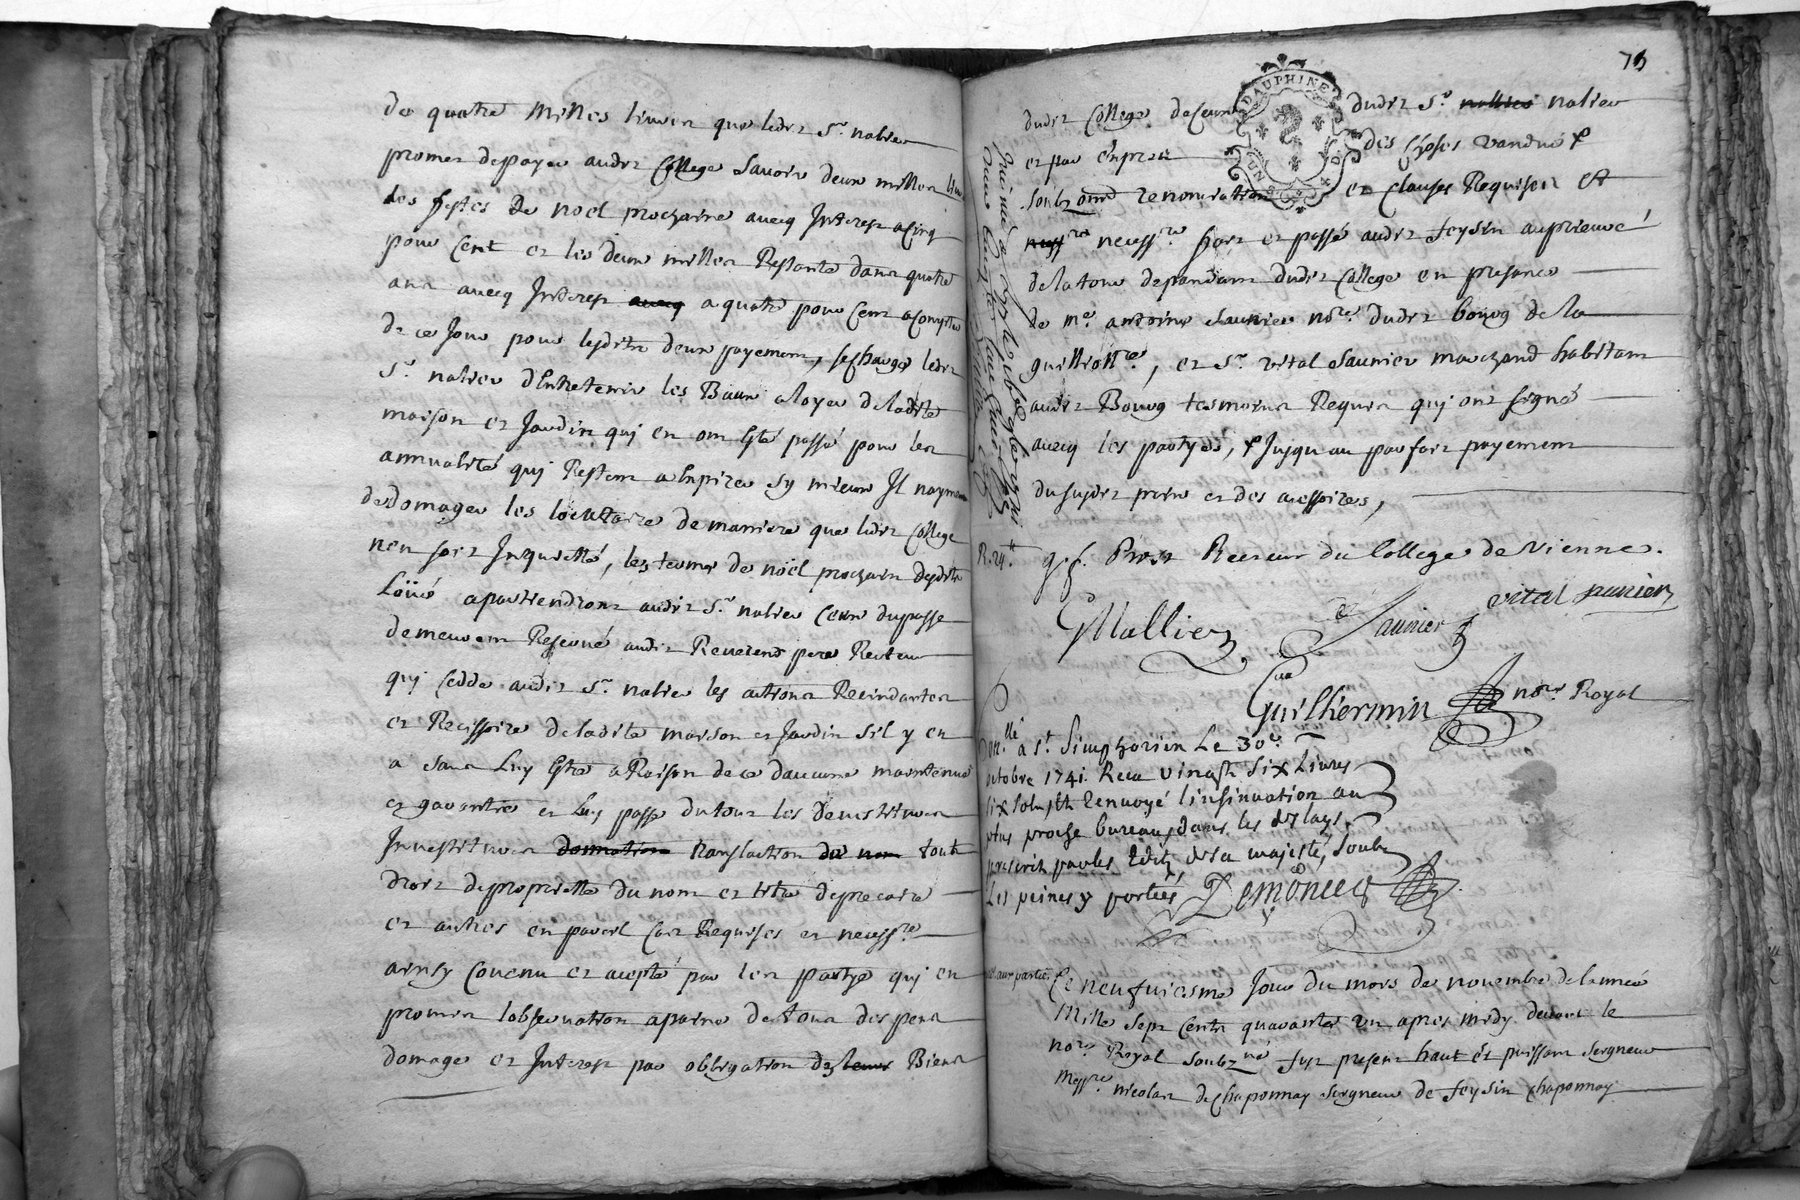 de quatre Milles livres que ledit Sr. nalier
promet depayer audit College Savoir deux milles liv
les festes de noel prochaine avecq Interest a Cinq
pour Cent et les deux milles Restante dans quatre
ans avecq Interest avecq a quatre pour Cent a Compter
de ce Jour pour lesdits deux payement, se charge ledit
Sr. nalier d'Entretenir les Baux a loyer deladite
maison et Jardin qui en ont Esté passé pour les
annualité qui Restent a Expirer sy mieux Il n'ayme
dedomager les locataire de maniere que ledit College
n'en soit Inquietté, les termes de noël prochain desdits
Loüé apartiendront audit Sr. nalier Ceux du passe
demeurent Reservé audit Reverend pere Recteur
qui Cedde audit Sr. nalier les actions Recindantes
et Recissoire deladite maison et Jardin s'il y en
a sans Luy Estre a Raison de ce d'aucune maintenue
et garantie et Luy passe du tout les devestitures
Investitures donnation translaction de nom tout
droit de propriette du nom et titre de precaire
et autres en pareil Cas Requises et necessre.
ainsy Convenu et acepté par les partye qui en
promis l'observation a peine de tous despens
domages et Interest par obligation de leurs Biens
73
DAUPHINE
dudit College de Ceux dudit Sr. nallier nalier
et par Exprest des choses vandue
soubzmi renonciation et clauses Requises Et
necessre necessre. fait et passé audit feysin au prieuré
de la tour dependant dudit College en presance
de me. antoine Saunier nore. dudit bourg de la
guilliottre, et Sr. vital Saunier marchand habitant
audit Bourg tesmoins Requis qui ont signé
avecq les partyes, Jusqu'au parfait payement
du susdit prix et des acessoires,
R. 24. Prost Recteur du College de Vienne.
GNallier Saunier vital sunier
Guilhermin nore Royal
Conlle. a St. Simphorien Le 30e.
octobre 1741. Recu vingt Six Livres
six sols, et Renvoyé l'insinuation au
plus proche bureau, dans les delays
prescrit par les Edits de sa majesté, Soubz
Les peines y portées, Demonceg
Ce neufviesme Jour du mois de novembre de l'année
Mille Sept Cents quarante un apres midy devant le
nore Royal soubzné fut present haut et puissant seigneur
Messre. nicolas de Chaponnay seigneur de feysin Chaponnay